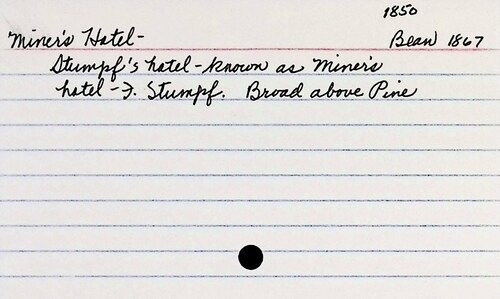 1850
Miner's Hotel- Bean 1867
Stumpf's hotel-known as Miner's
hotel-F. Stumpf. Broad above Pine